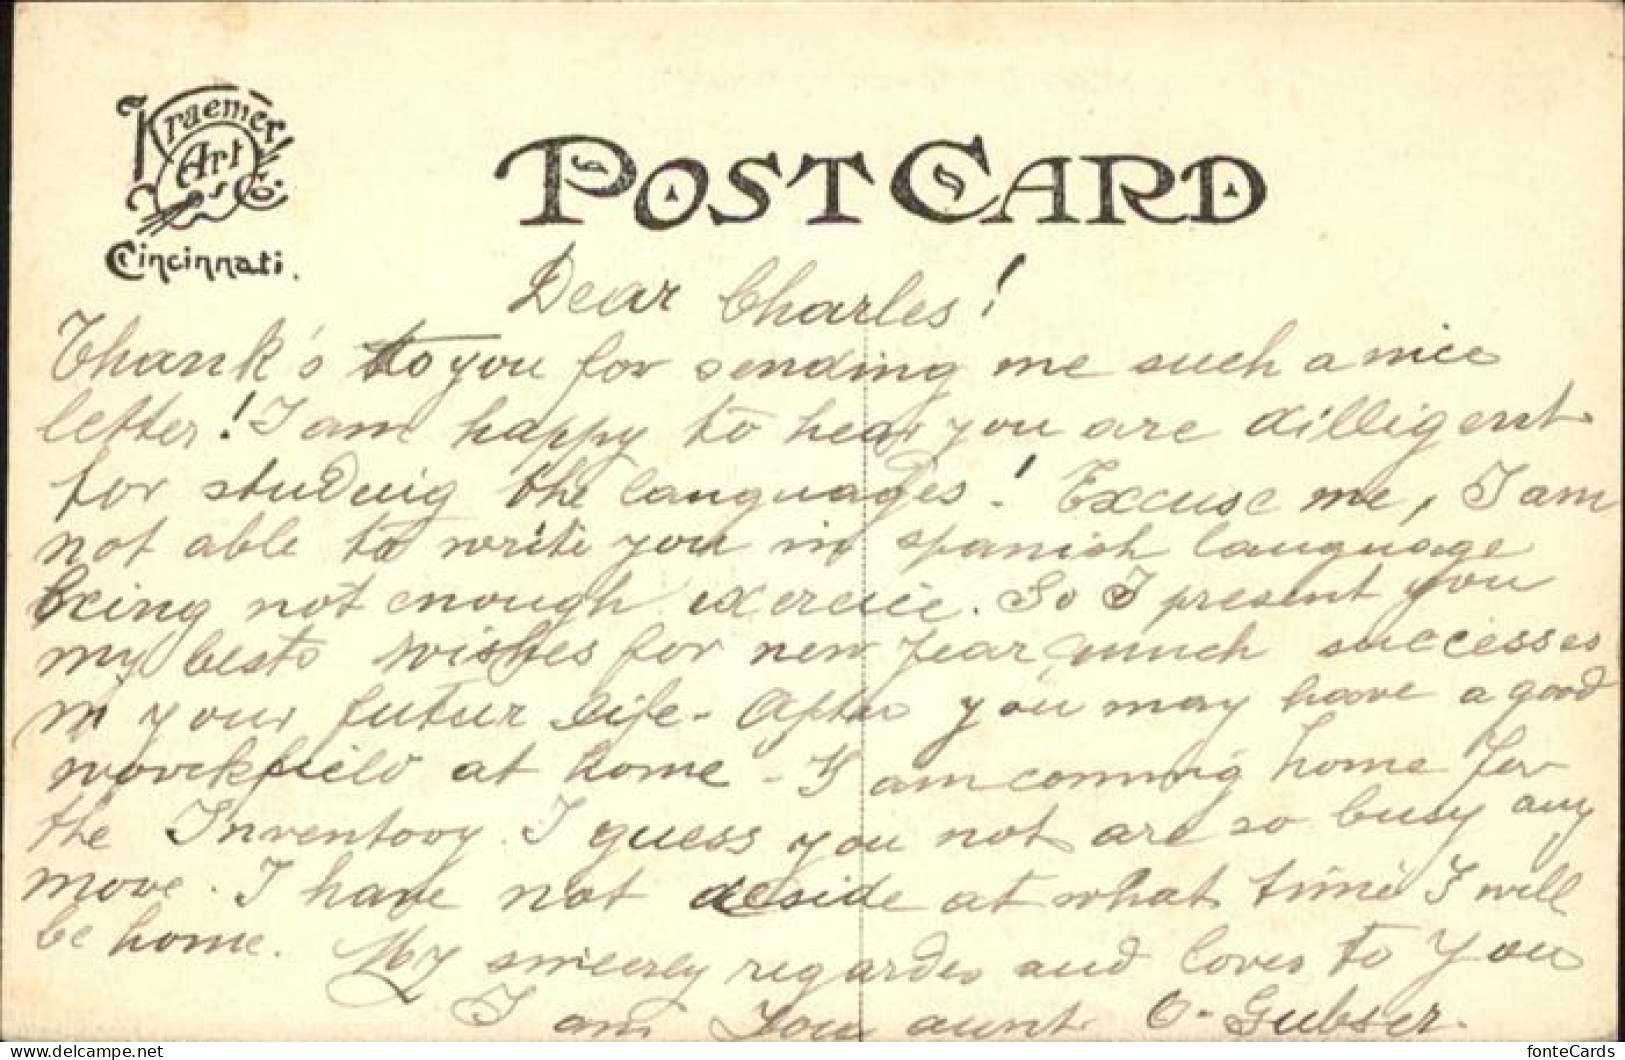 Kraemer
Art
& Co.
Cincinnati.
POST CARD
Dear Charles!
Thank's to you for sending me such a nice
letter! I am happy to hear you are dilligent
for studuig the languages! Excuse me, I am
not able to write you in spanish language
being not enough exercice. So I present you
my bests wishes for new Year much successes
in your futur life - After you may have a good
worckfield at home - I am coming home for
the Inventory. I guess you not are so busy any
move. I have not deside at what time I will
be home.
My sincerly regardes and loves to You
I am Your aunt O. Gubser.
fonteCards